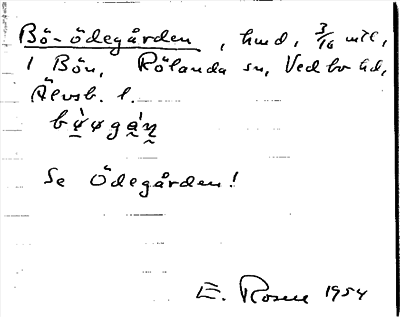 Bö-ödegården, hmd, 3/16 mtl,
i Bön, Rölanda sn, Vedbo hd,
Älvsb. l.
Se Ödegården!
E. Rosén 1954